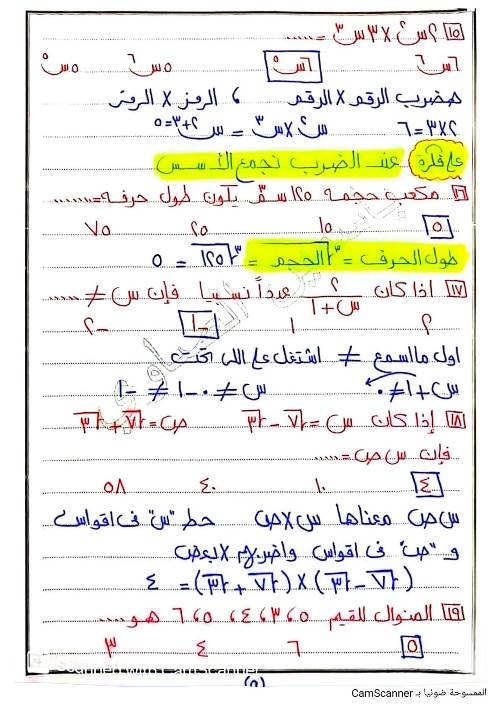 ١٥ ٢س٢ × ٣س٣ = .......
٦س٦ ٦س٥ ٥س٦ ٥س٥
هنضرب الرقم × الرقم ، الرمز × الرمز
٢×٣=٦ س٢×س٣ = س٢+٣=٥
على فكرة عند الضرب نجمع الأسس
١٦ مكعب حجمه ١٢٥ سم٣ يكون طول حرفه=.......
٥ ١٥ ٢٥ ٧٥
طول الحرف = ٣√الحجم = ٣√١٢٥ = ٥
١٧ اذا كان ٢/س+١ عدداً نسبيا فإن س ≠ .....
٢ ١ -١ -٢
اول ما اسمع ≠ اشتغل على اللى تحت
س+١≠٠ س≠٠-١≠-١
١٨ إذا كان س=√٧-√٣ ص=√٧+√٣
فإن س ص = .....
٤ ١٠ ٤٠ ٥٨
س ص معناها س×ص حط "س" فى اقواس
و "ص" فى اقواس واضربهم × بعض
(√٧-√٣)×(√٧+√٣) = ٤
١٩ المنوال للقيم ٥،٣،٤،٥،٦ هو ....
٥ ٦ ٤ ٣
Scanned with CamScanner
الممسوحة ضوئيا بـ CamScanner